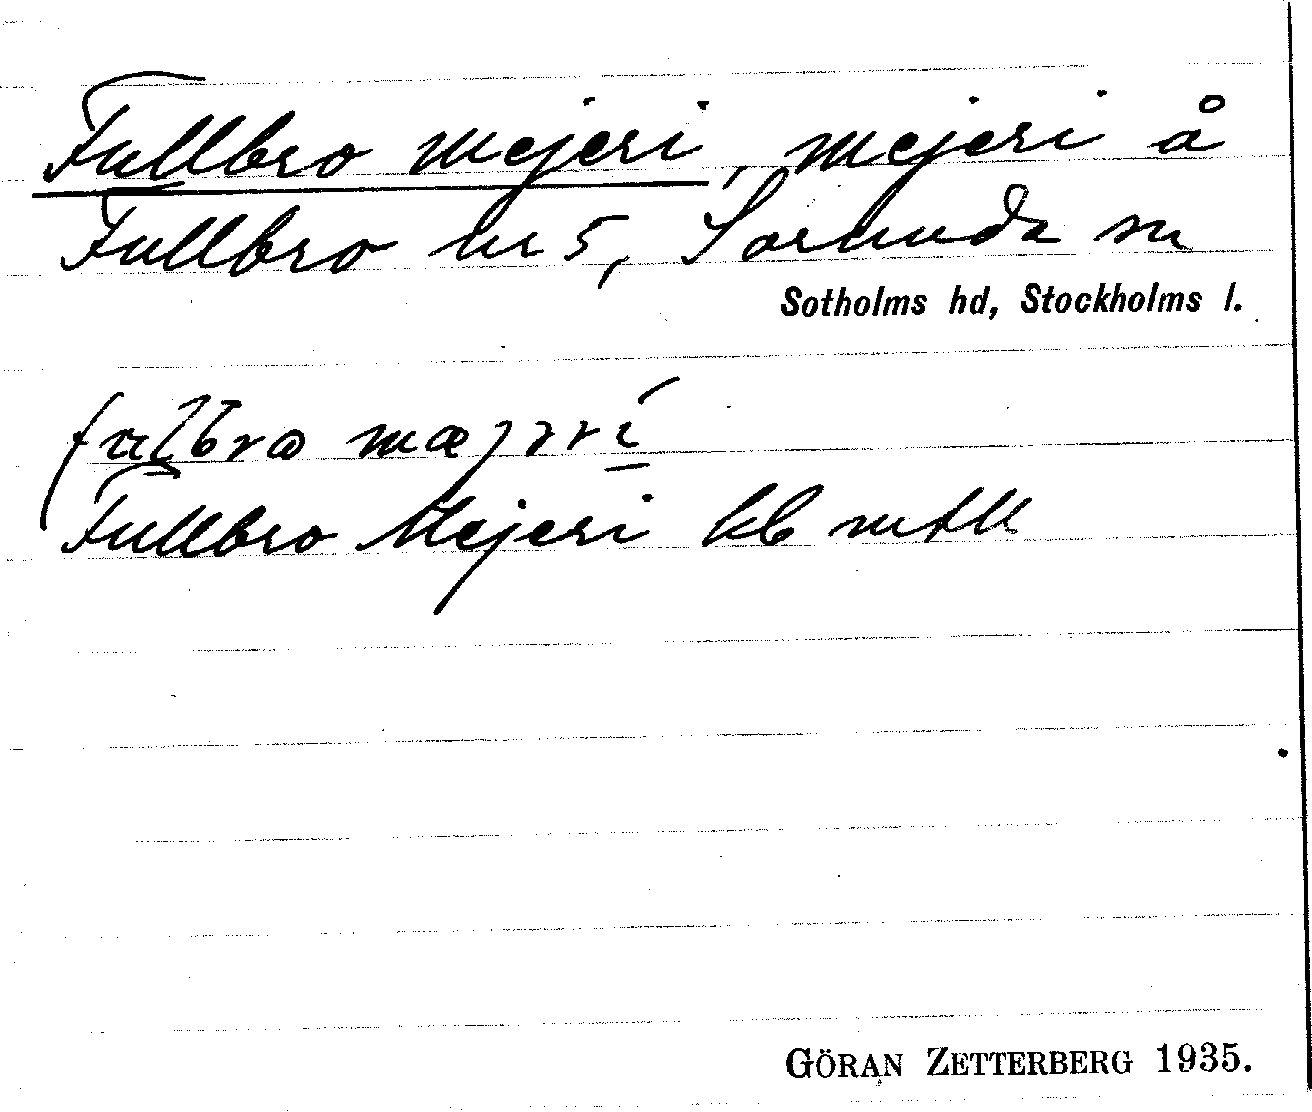 Fullbro mejeri, mejeri å
Fullbro nr 5, Sorunda sn
Sotholms hd, Stockholms l.
Fullbro Mejeri
GÖRAN ZETTERBERG 1935.